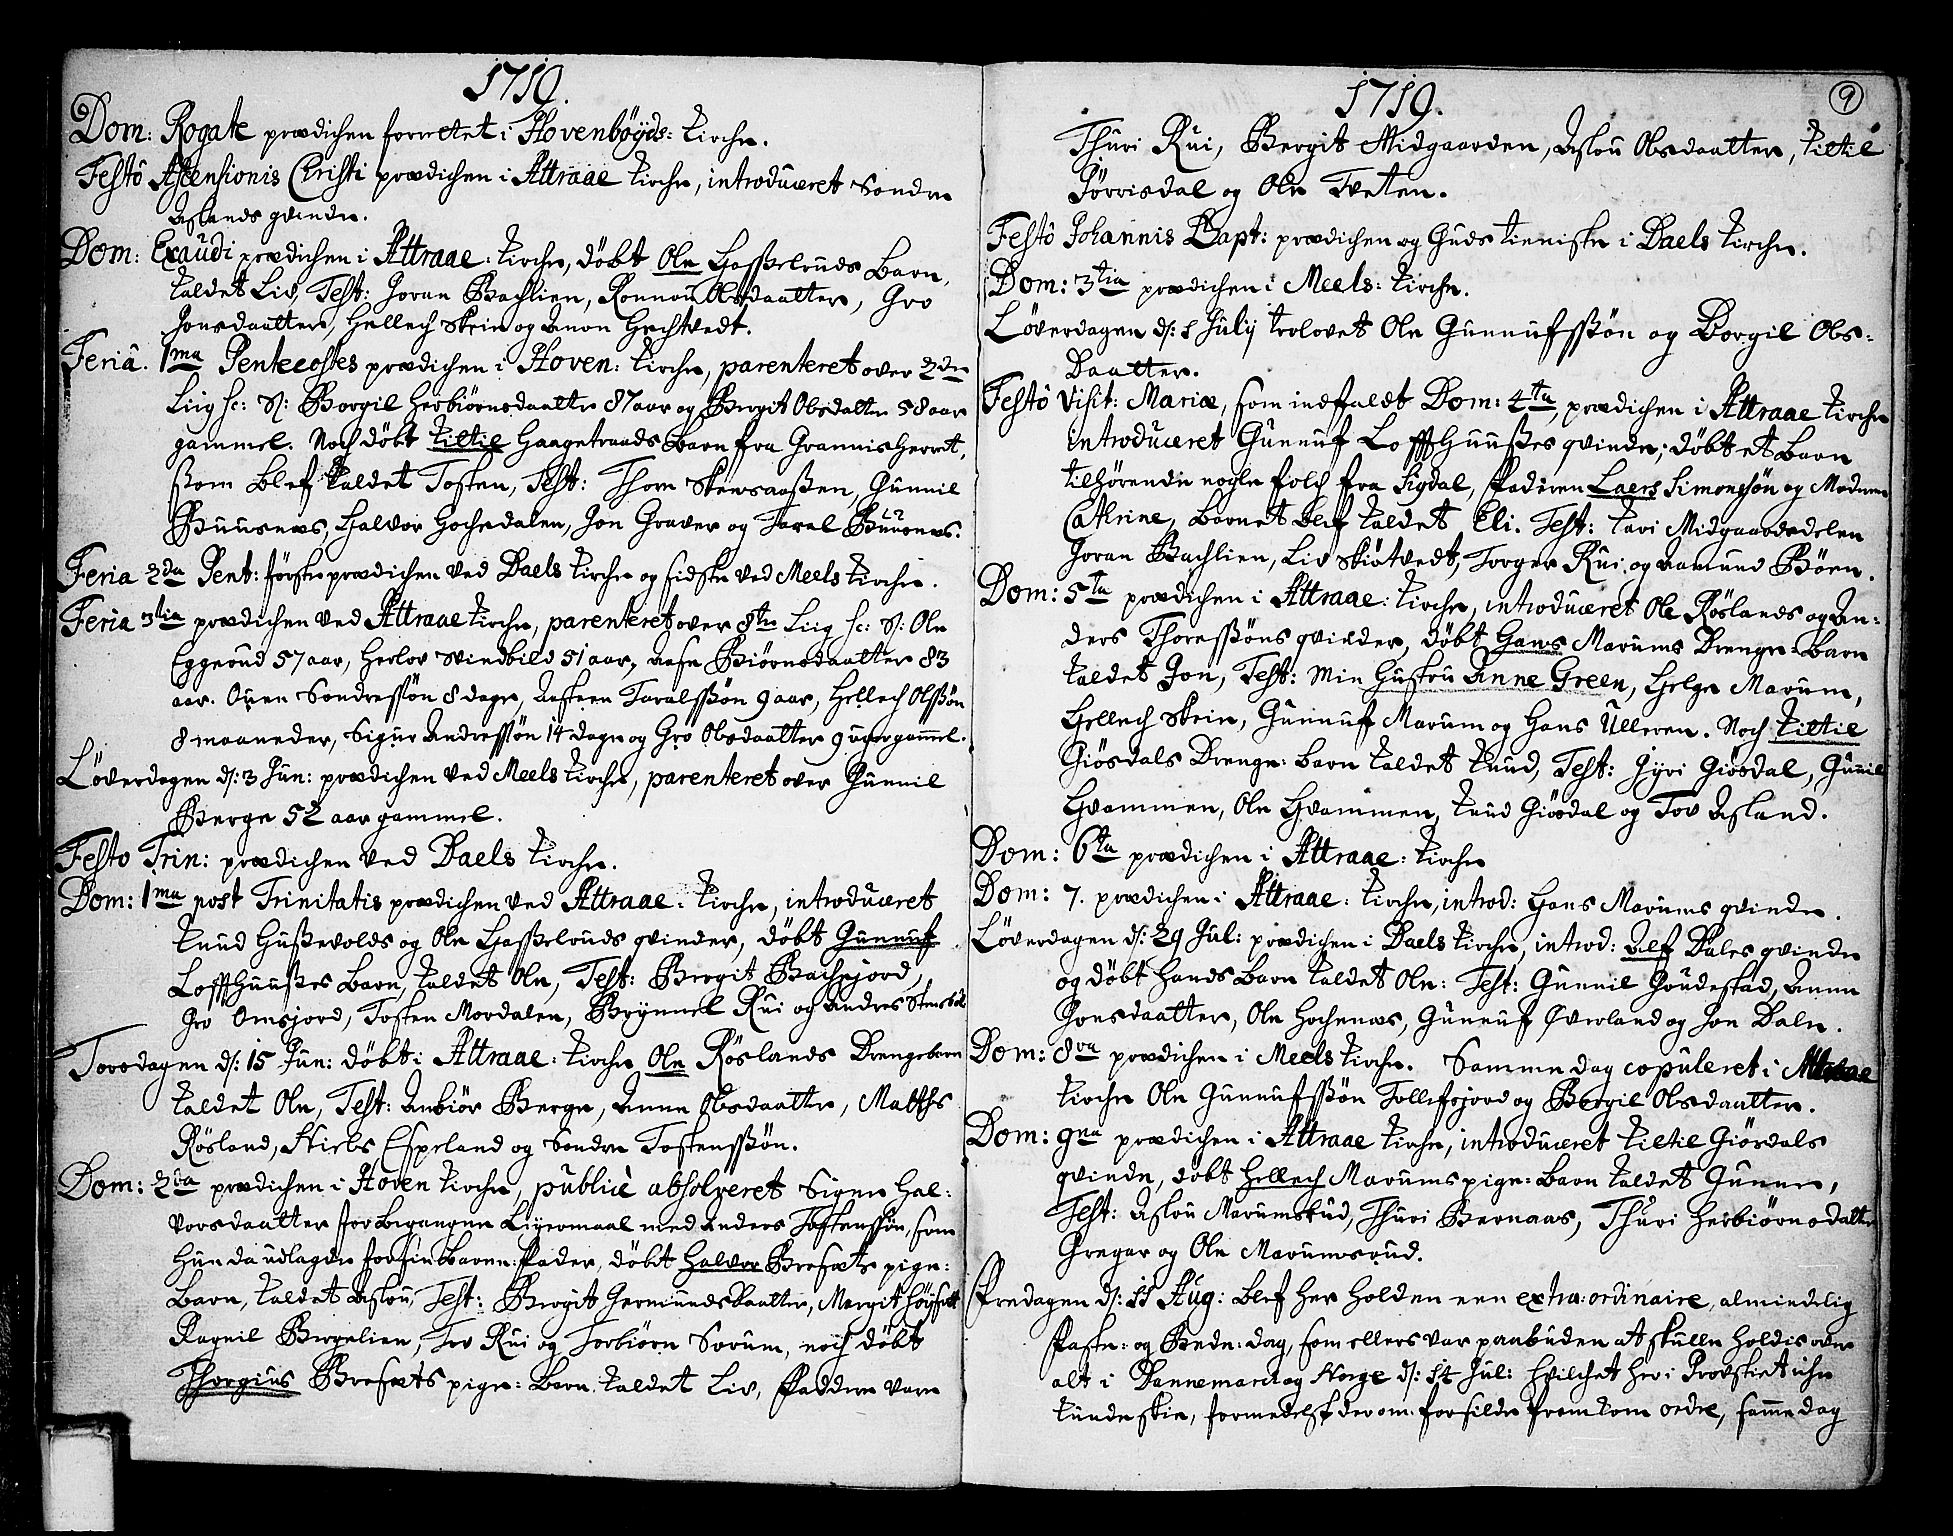 1719.
Dom: Rogate prædichen forrettet i Hovenbøyds: Kirche.
Festô Ascensionis Christi prædichen i Attraae Kirche, introduceret Sondre
Aslands qvinde.
Dom: Exaudi prædichen i Attraae: Kirche, døbt Ole Hasseleruds Barn,
kaldet Liv, Test: Joran Bachlien, Ronnou Olsdaatter, Gro
Jonsdaatter, Hellech Skeie og Anon Hechtvedt.
Feriâ. 1ma Pentecostes prædichen i Hoven: Kirche, parenteret over 2de
Liig sc: N: Borgil Herbiørnsdaatter 87 aar og Bergit Olsdatter 58 aar
gammel. Noch døbt Kittil Haagetraads Barn fra Grannisherret,
ssom blef kaldet Tosten, Test: Thore Skeesaassen, Gunnil
Buusnæs, Halvor Gochsdalen, Jon Graver og Taral Buusnæs.
Feria 2da Pent: først prædichen ved Daels Kirche og sidste ved Meels Kirche.
Feria 3tia prædichen ved Attraae Kirche, parenteret over 8te Liig sc: N: Ole
Eggerud 57 aar, Herlov Svindbild 51 aar, Aase Biørnsdaatter 83
aar. Ouen Sondressøn 8 dage, Aasteen Taralssøn 9 aar, Hellech Olssøn
8 maaneder, Sigur Andressøn 14 dage og Gro Olsdaatter 9 uger gammel.
Løverdagen d: 3 Jun: prædichen ved Meels Kirche, parenteret over Gunnil
Berge 52 aar gammel.
Festo Trin: prædichen ved Daels Kirche.
Dom: 1ma post Trinitatis prædichen ved Attraae: Kirche, introduceret
Knud Hussevolds og Ole Hasseleruds qvinder, døbt Gunnuf
Loffthuusses Barn, kaldet Ole, Test: Bergit Bachejord,
Gro Omsjord, Tosten Mordalen, Brynnel Rui og Andres
Torsdagen d: 15 Jun: døbt i Attraae: Kirche Ole Røslands Drengebarn
kaldet Ole, Test: Anbiør Berge, Anne Olsdaatter, Matths
Røsland, Niels Espeland og Sondre Tostenssøn.
Dom: 2da prædichen i Hoven Kirche, publicè absolveret Signe Hal:
vorsdaatter for begangen Leyermaal med Anders Tostenssøn, som
hun da udlagde for sin barne: Fader, døbt Halvor Brefæts pige:
Barn, kaldet Aslou, Test: Bergit Germundsdaatter, Mergit Høysett
Ragnil Bergelien, Tov Rui og Torbiørn Sorum, noch døbt
Thorgius Brefæts pige: Barn kaldet Liv, Faddere vare
1719. 9
Thuri Rui, Bergit Midgaarden, Aslou Olsdaatter, Kittil
Jørrisdal og Ole Tveten.
Festô Johannis Bapt: prædichen og Guds tieniste i Daels Kirche.
Dom: 3tia prædichen i Meels: Kirche.
Løverdagen d: 1 July trolovet Ole Gunnufssøn og Borgil Ols:
Daatter.
Festô Visit: Mariæ, som indfaldt Dom: 4ta, prædichen i Attraae Kirche
introduceret Gunnuf Loffthuusses qvinde; døbt et Barn
tilhørende nogle folch fra Sigdal, Faderen Laers Simonssøn og Moderen
Cathrine, barnet blef kaldet Eli. Test: Kari Midgaardsdelen
Joran Bachlien, Liv Skiøtvedt, Torger Rui og Aamund Bøen.
Dom: 5ta prædichen i Attraae: Kirche, introduceret Ole Røslands og An:
ders Thoressøns qvinder, døbt Hans Marums Drenge: Barn
kaldet Jon, Test: min Hustru Anne Green, Helge Marum,
Hellech Skeie, Gunnuf Marum og Hans Ulleren. Noch Kittil
Giøsdals Drenge: barn kaldet Knud, Test: Gyri Giøsdal, Gunnil
Hvammen, Ole Hvammen, Knud Giøsdal og Tov Asland.
Dom: 6ta prædichen i Attraae: Kirche
Dom: 7. prædichen i Attraae: Kirche, introd: Hans Marums qvinde.
Løverdagen d: 29 Jul: prædichen i Daels Kirche, introd: Alf Dales qvinde
og døbt hands Barn kaldet Ole: Test: Gunnil Goudestad, Anne
Jonsdaatter, Ole Hochenæs, Gunnuf Øverland og Jon Dale.
Dom: 8va prædichen i Meels Kirche. Samme dag copuleret i Attraae
Kirche Ole Gunnufssøn Tollefsjord og Borgil Olsdaatter.
Dom: 9na prædichen i Attraae Kirche, introduceret Kittil Giøsdals
qvinde, døbt Hellech Marums pige: Barn kaldet Gunne,
Test: Aslou Marumsrud, Thuri Bernaas, Thuri Herbiørnsdatter
Gregar og Ole Marumsrud.
Fredagen d: 11 Aug: blef her holden een extra: ordinaire, almindelig
Faste: og Bede: dag, som ellers var paabuden at skulle holdis over
alt i Dannemarck og Norge d: 14 Jul: hvilchet her i Provstiet iche
kunde skie, formedelst der om for silde fremkom ordre, samme dag